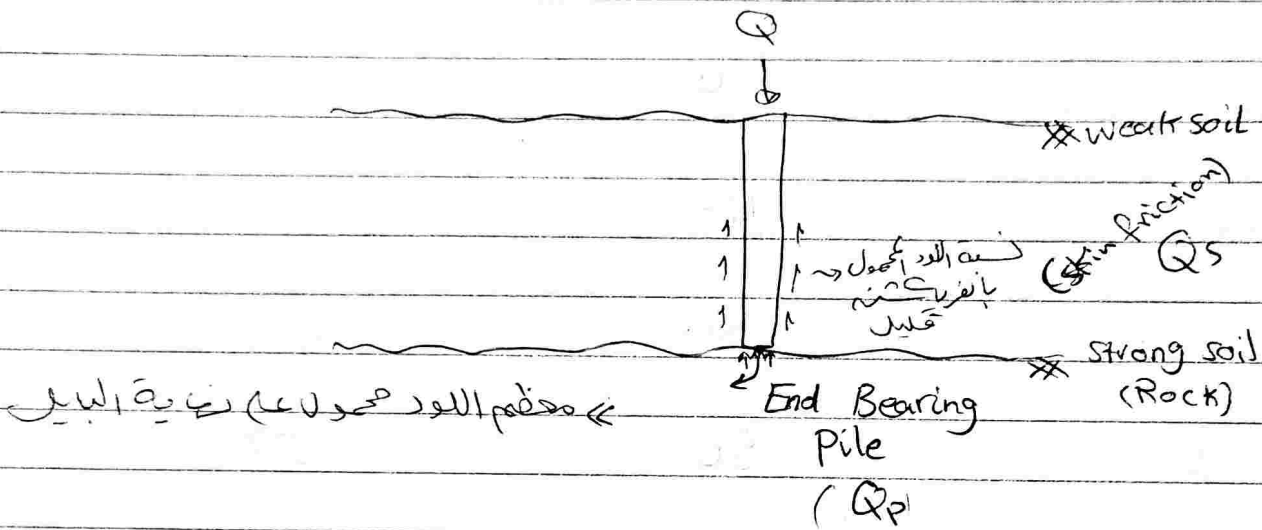 Q
weak soil
(skin friction)
Qs
نسبة اللود المحمول
بالفركشن
قليل
strong soil
(Rock)
End Bearing
Pile
(Qp
معظم اللود محمول على نهاية البايل